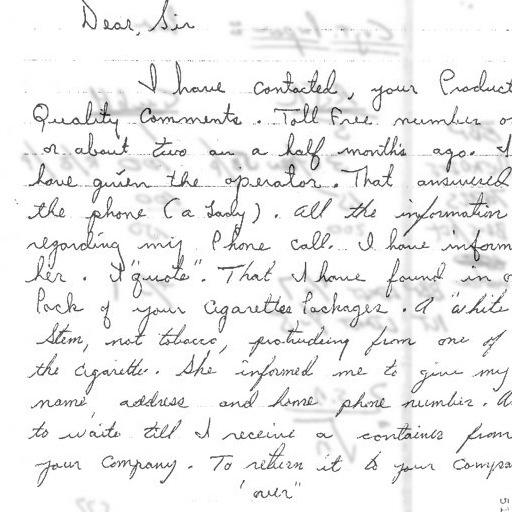 Dear, Sir
I have contacted, your Product
Quality Comments. Toll Free number o
or about two an a half month's ago. I
have given the operator. That answered
the phone (a Lady). All the information
regarding my Phone call. I have inform
her. I "quote". That I have found in o
Pack of your Cigarettes Packages. A "white
Stem, not tobacco, protruding from one of
the Cigarette. She informed me to give my
name, address and home phone number. A
to waite till I receive a container from
your Company. To return it to your Compa
"over"
51